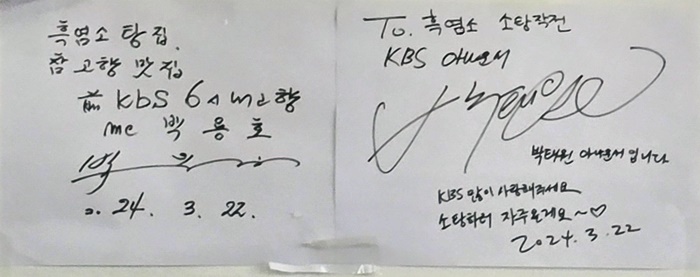 흑염소 탕집
참 고향 맛집
前 KBS 6시 내고향
mc 박 용 호
2024. 3. 22.
To. 흑염소 소탕작전
KBS 아나운서
박태원 아나운서입니다
KBS 많이 사랑해주세요
소탕하러 자주올게요~♡
2024. 3. 22